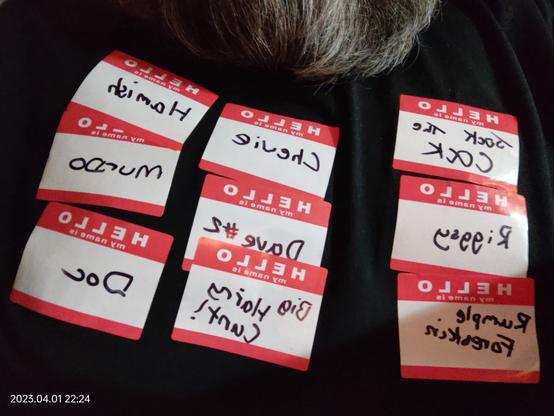 HELLO
my name is
Hamish
HELLO
my name is
Chewie
HELLO
my name is
Jock The
COCK
my name is
MURDO
HELLO
my name is
Dave #2
HELLO
my name is
Riggsy
HELLO
my name is
Doc
HELLO
my name is
Big Hairy
Cunt!
HELLO
my name is
Rumple
Foreskin
2023.04.01 22:24